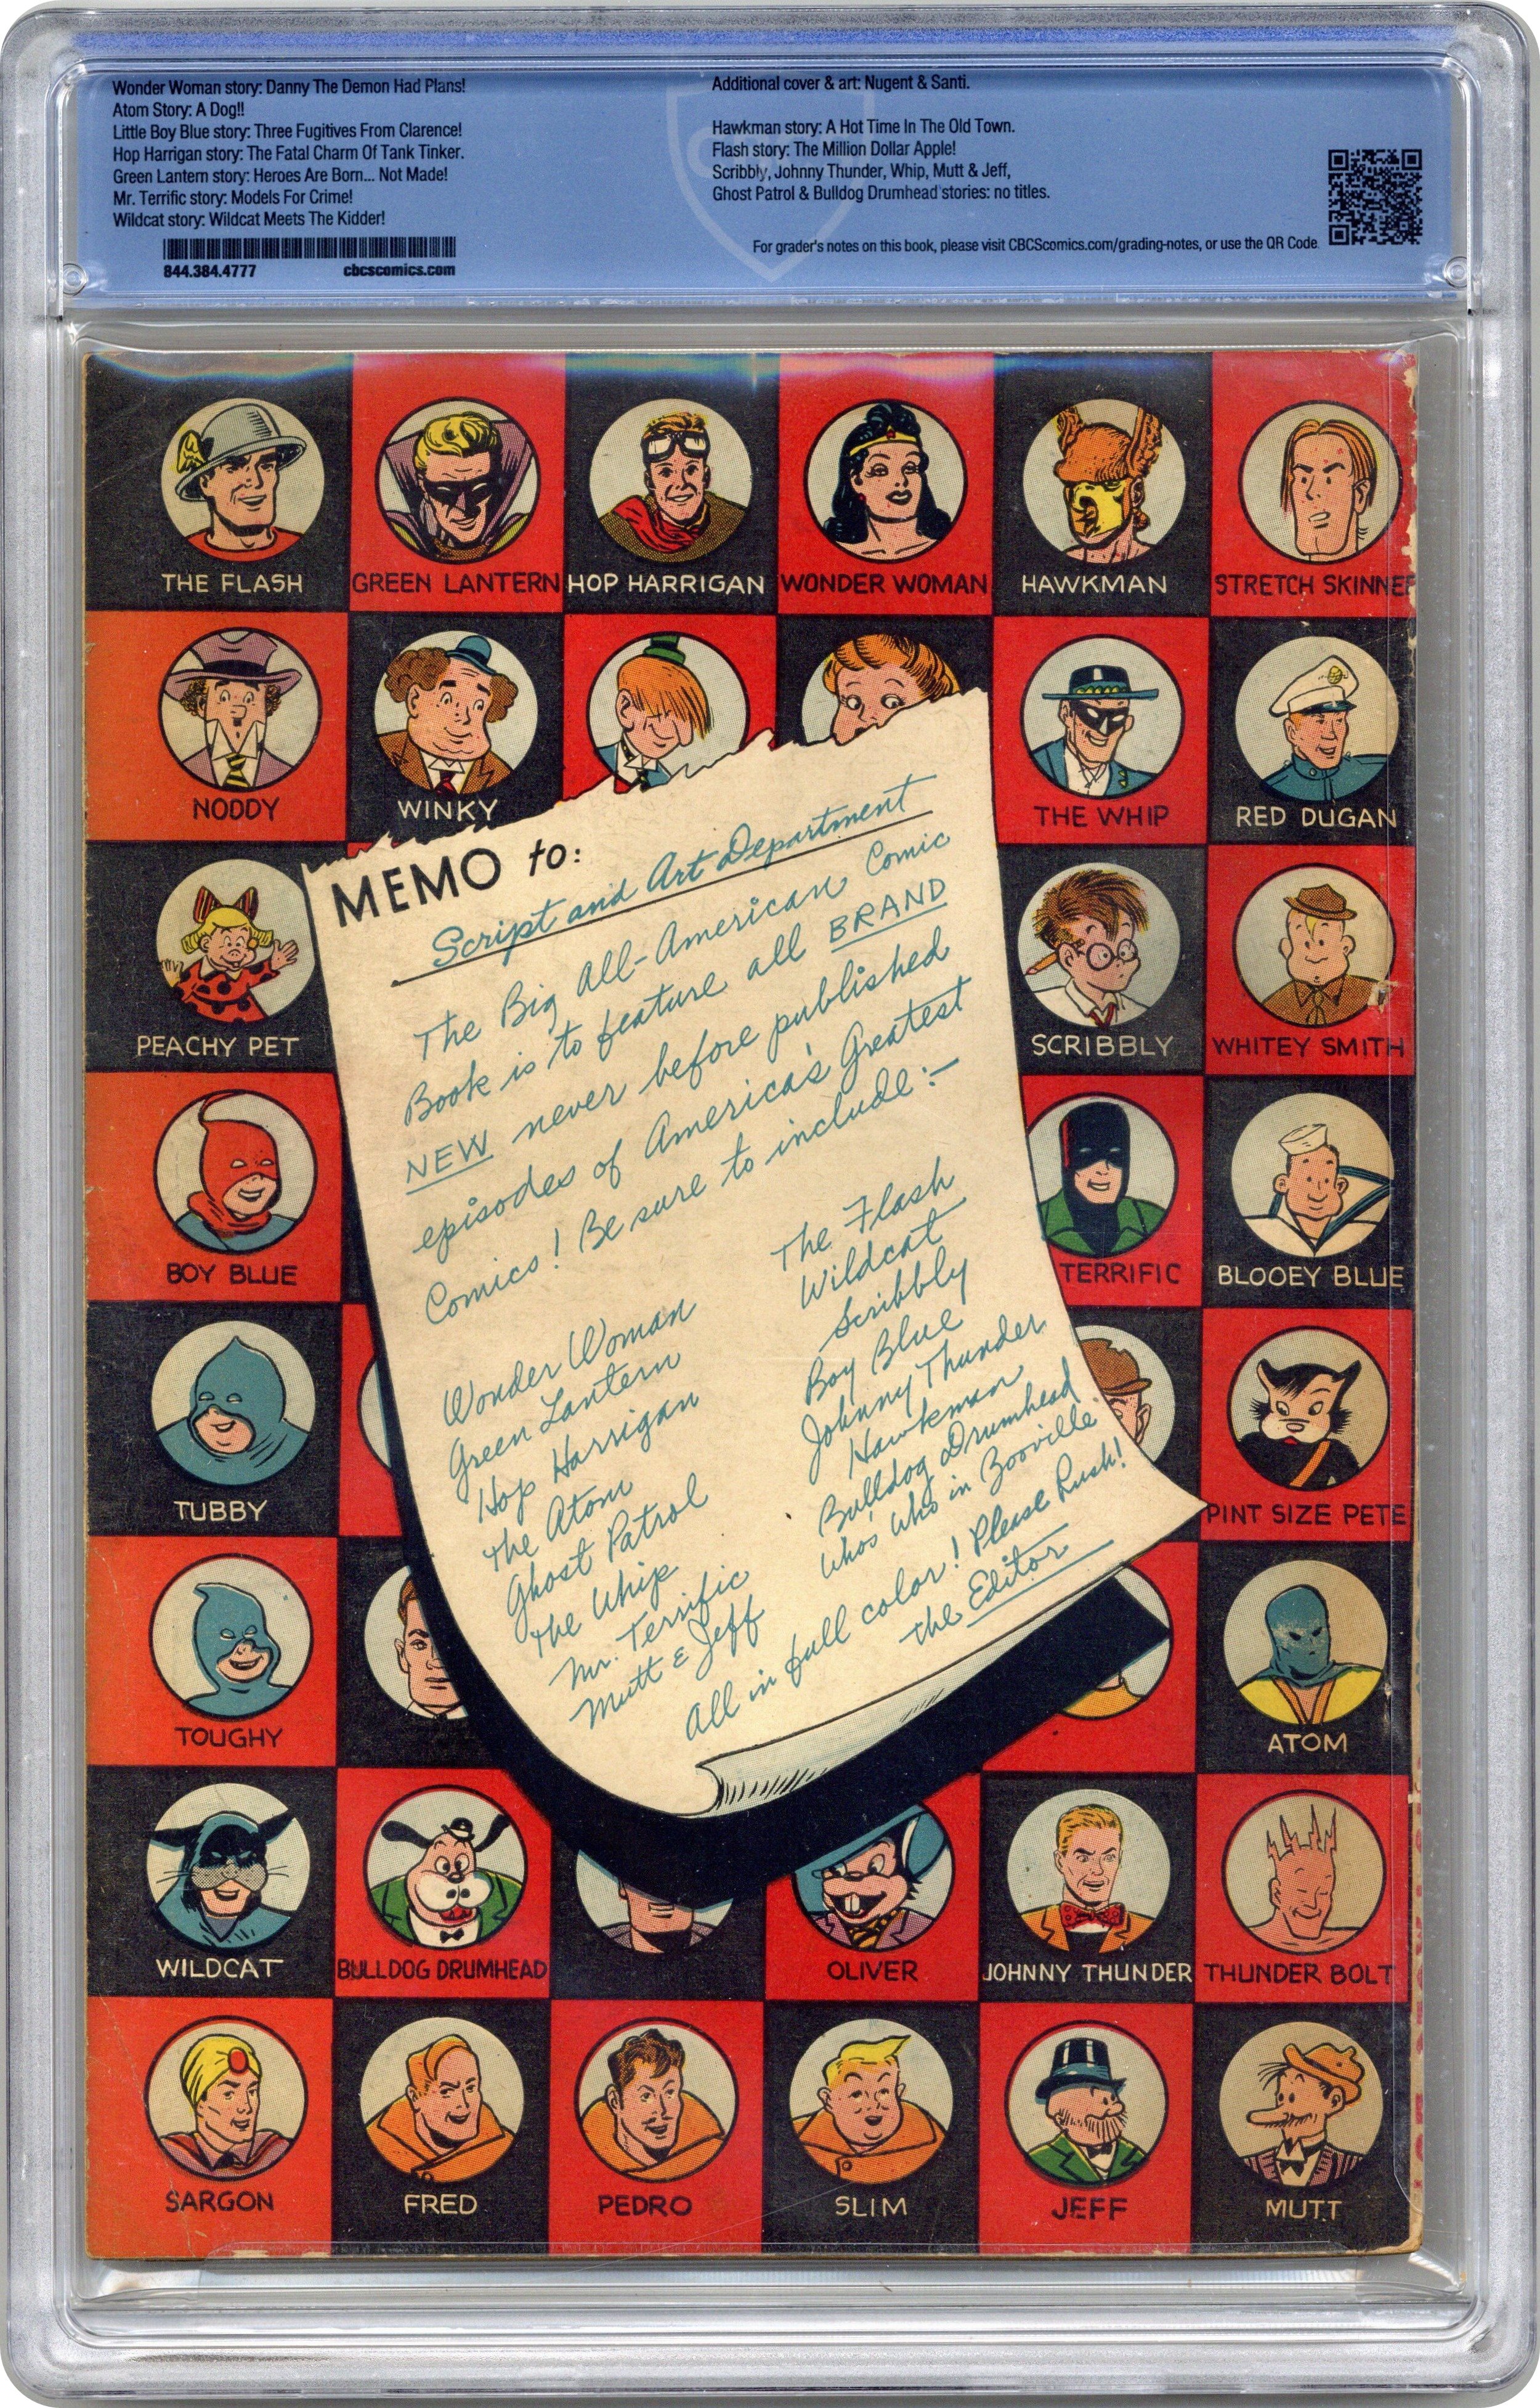 Wonder Woman story: Danny The Demon Had Plans!
Atom Story: A Dog!!
Little Boy Blue story: Three Fugitives From Clarence!
Hop Harrigan story: The Fatal Charm Of Tank Tinker.
Green Lantern story: Heroes Are Born... Not Made!
Mr. Terrific story: Models For Crime!
Wildcat story: Wildcat Meets The Kidder!
844.384.4777 cbcscomics.com
Additional cover & art: Nugent & Santi.
Hawkman story: A Hot Time In The Old Town.
Flash story: The Million Dollar Apple!
Scribbly, Johnny Thunder, Whip, Mutt & Jeff,
Ghost Patrol & Bulldog Drumhead stories: no titles.
For grader's notes on this book, please visit CBCScomics.com/grading-notes, or use the QR Code.
THE FLASH GREEN LANTERN HOP HARRIGAN WONDER WOMAN HAWKMAN STRETCH SKINNER
NODDY WINKY THE WHIP RED DUGAN
PEACHY PET SCRIBBLY WHITEY SMITH
BOY BLUE TERRIFIC BLOOEY BLUE
TUBBY PINT SIZE PETE
TOUGHY ATOM
WILDCAT BULLDOG DRUMHEAD OLIVER JOHNNY THUNDER THUNDER BOLT
SARGON FRED PEDRO SLIM JEFF MUTT
MEMO to:
Script and Art Department
The Big All-American Comic
Book is to feature all BRAND
NEW never before published
episodes of America's Greatest
Comics! Be sure to include:-
Wonder Woman
Green Lantern
Hop Harrigan
The Atom
Ghost Patrol
The Whip
Mr. Terrific
Mutt & Jeff
The Flash
Wildcat
Scribbly
Boy Blue
Johnny Thunder
Hawkman
Bulldog Drumhead
Who's Who in Zooville
All in full color! Please Rush!
The Editor